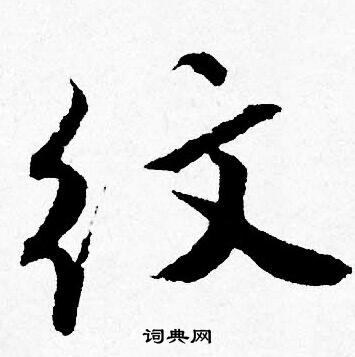 纹
词典网